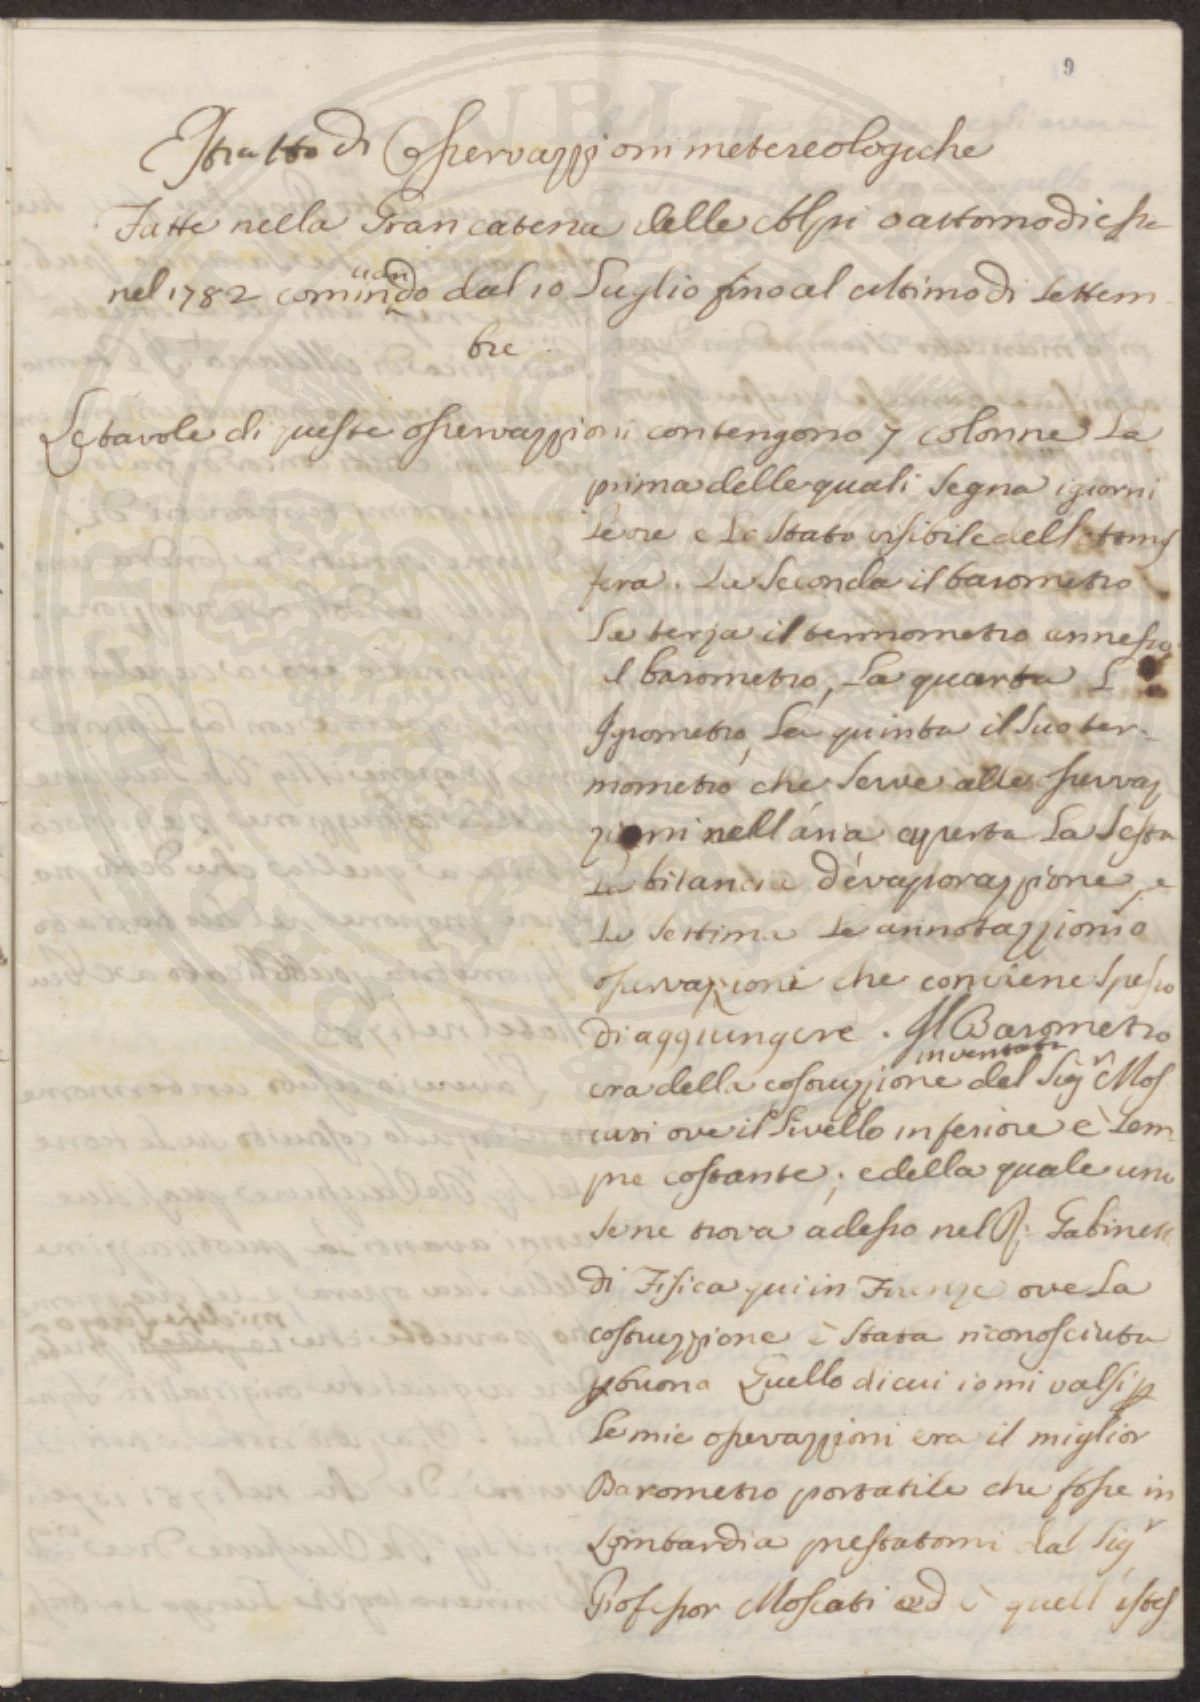 9
Estratto di Osservazzioni metereologiche
Fatte nella Gran catena delle Alpi o attorno di esse
nel 1782 cominciando dal 10 Luglio fino al ultimo di Settem
bre
Le tavole di queste osservazzioni contengono 7 colonne La
prima delle quali segna i giorni
Le ore e Lo Stato visibile dell atmos
fera . La Seconda il barometro
La terza il termometro annesso
al barometro, La quarta L
Igrometro, La quinta il Suo ter-
mometro che Serve alle osservaz
zioni nell aria aperta La Sesta
La bilancia d'evaporazzione, e
La Settima Le annotazzioni o
osservazioni che conviene spesso
di aggiungere . Il Barometro
inventata
era della costruzzione del Sigr Mos
cati ove il Livello inferiore è Sem
pre costante ; e della quale uno
se ne trova adesso nel R. Gabinett
di Fisica qui in Firenze ove La
costruzzione è Stata riconosciuta
p buona Quello di cui io mi valsi p
Le mie osservazzioni era il miglior
Barometro portatile che fosse in
Lombardia prestatomi dal Sigr
Professor Moscati ed è quell istes